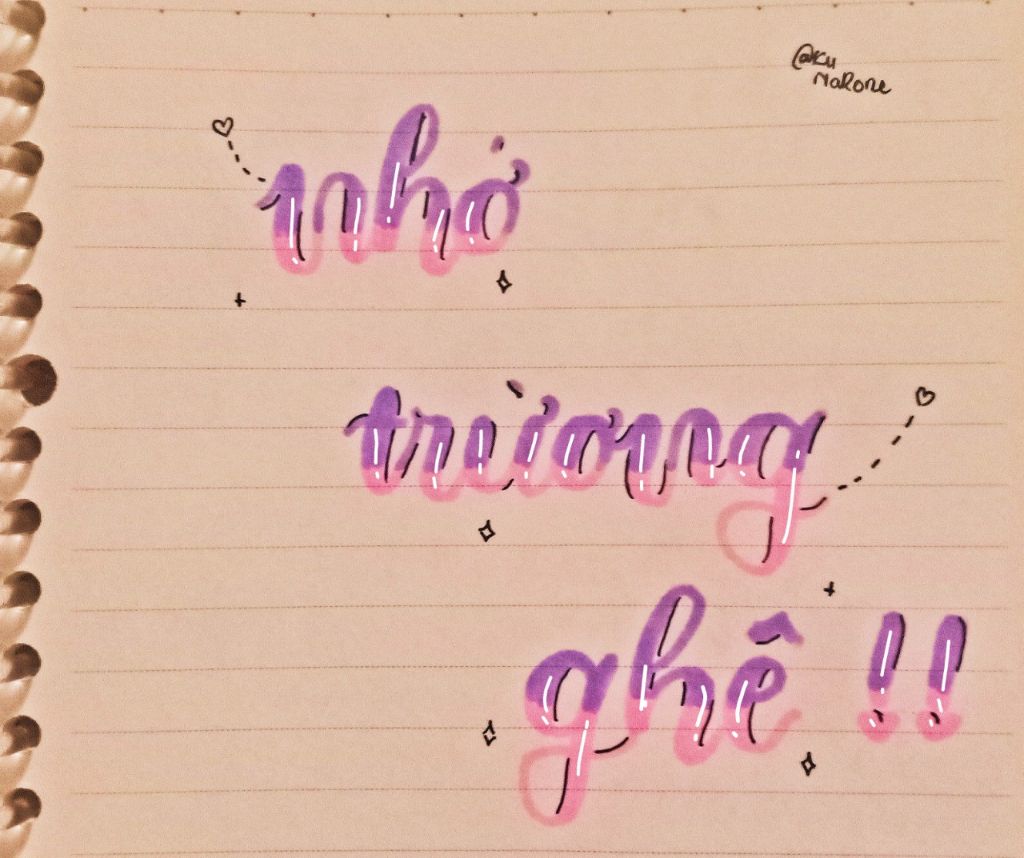 @Ku
NaRone
nhớ
trường
ghê !!